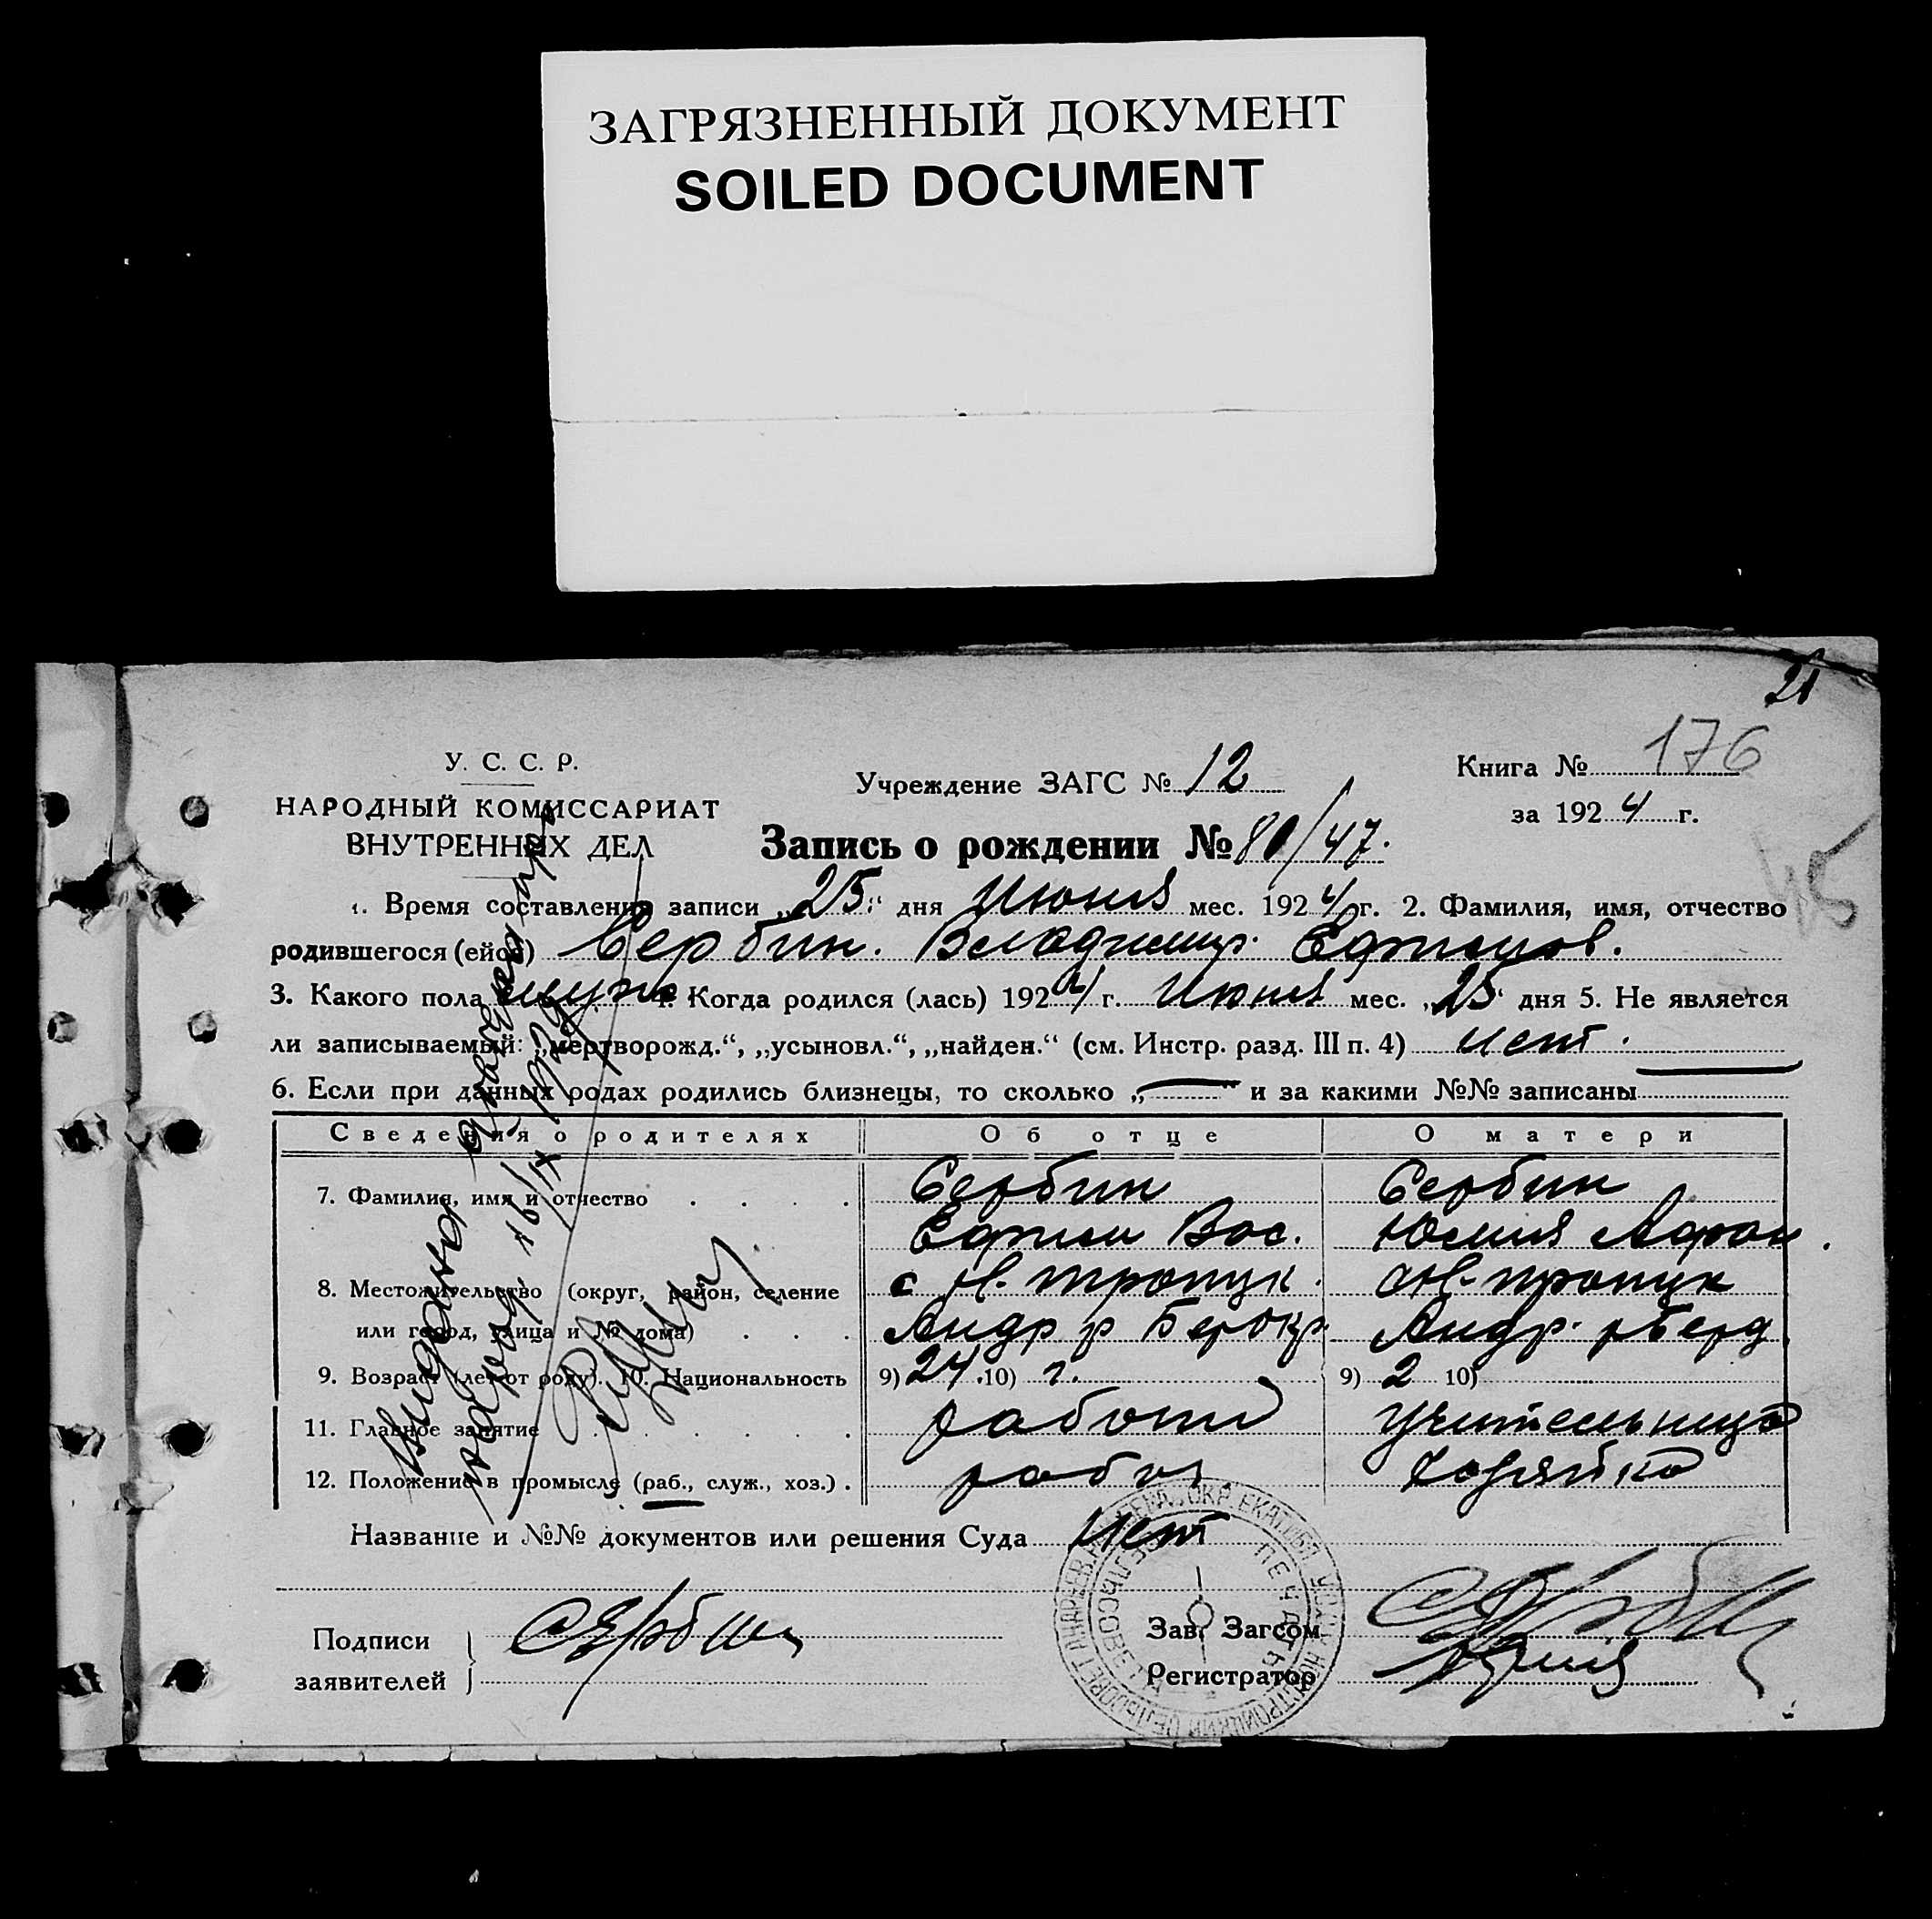 ЗАГРЯЗНЕННЫЙ ДОКУМЕНТ
SOILED DOCUMENT
21
176
У. С. С. Р.
НАРОДНЫЙ КОМИССАРИАТ
ВНУТРЕННИХ ДЕЛ
Учреждение ЗАГС № 12
Книга №
за 1924 г.
Запись о рождении № 80/47.
45
1. Время составления записи „25“ дня Июня мес. 1924 г. 2. Фамилия, имя, отчество
родившегося (ейся) Сербин. Владимир. Ефимов.
3. Какого пола муж 4. Когда родился (лась) 1924 г. Июня мес. „25“ дня 5. Не является
ли записываемый: „мертворожд.“, „усыновл.“, „найден.“ (см. Инстр. разд. III п. 4) нет.
6. Если при данных родах родились близнецы, то сколько „—“ и за какими №№ записаны
Сведения о родителях Об отце О матери
7. Фамилия, имя и отчество Сербин Сербин
Ефим Вас. Юлия Афан.
8. Местожительство (округ, район, селение с Н. троицк. Н. троицк
или город, улица и № дома) Андр р Бер окр. Андр. р Берд
9. Возраст (лет от роду). 10. Национальность 9) 24 10) г. 9) 2 10)
11. Главное занятие учительница
12. Положение в промысле (раб., служ., хоз.) хозяйка
Название и №№ документов или решения Суда Нет
Подписи заявителей Сербин
Зав. Загсом
Регистратор
16/IX 1939
ПЕЧАТЬ